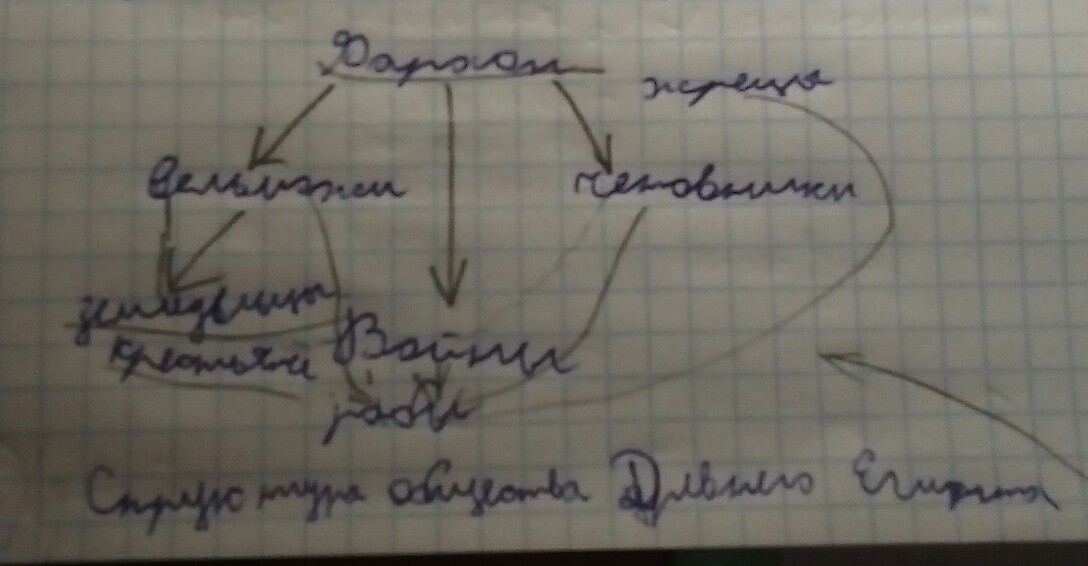 Фараон
жрецы
Вельможи
чиновники
земледельцы
Войны
крестьяне
рабы
Структура общества Древнего Египта